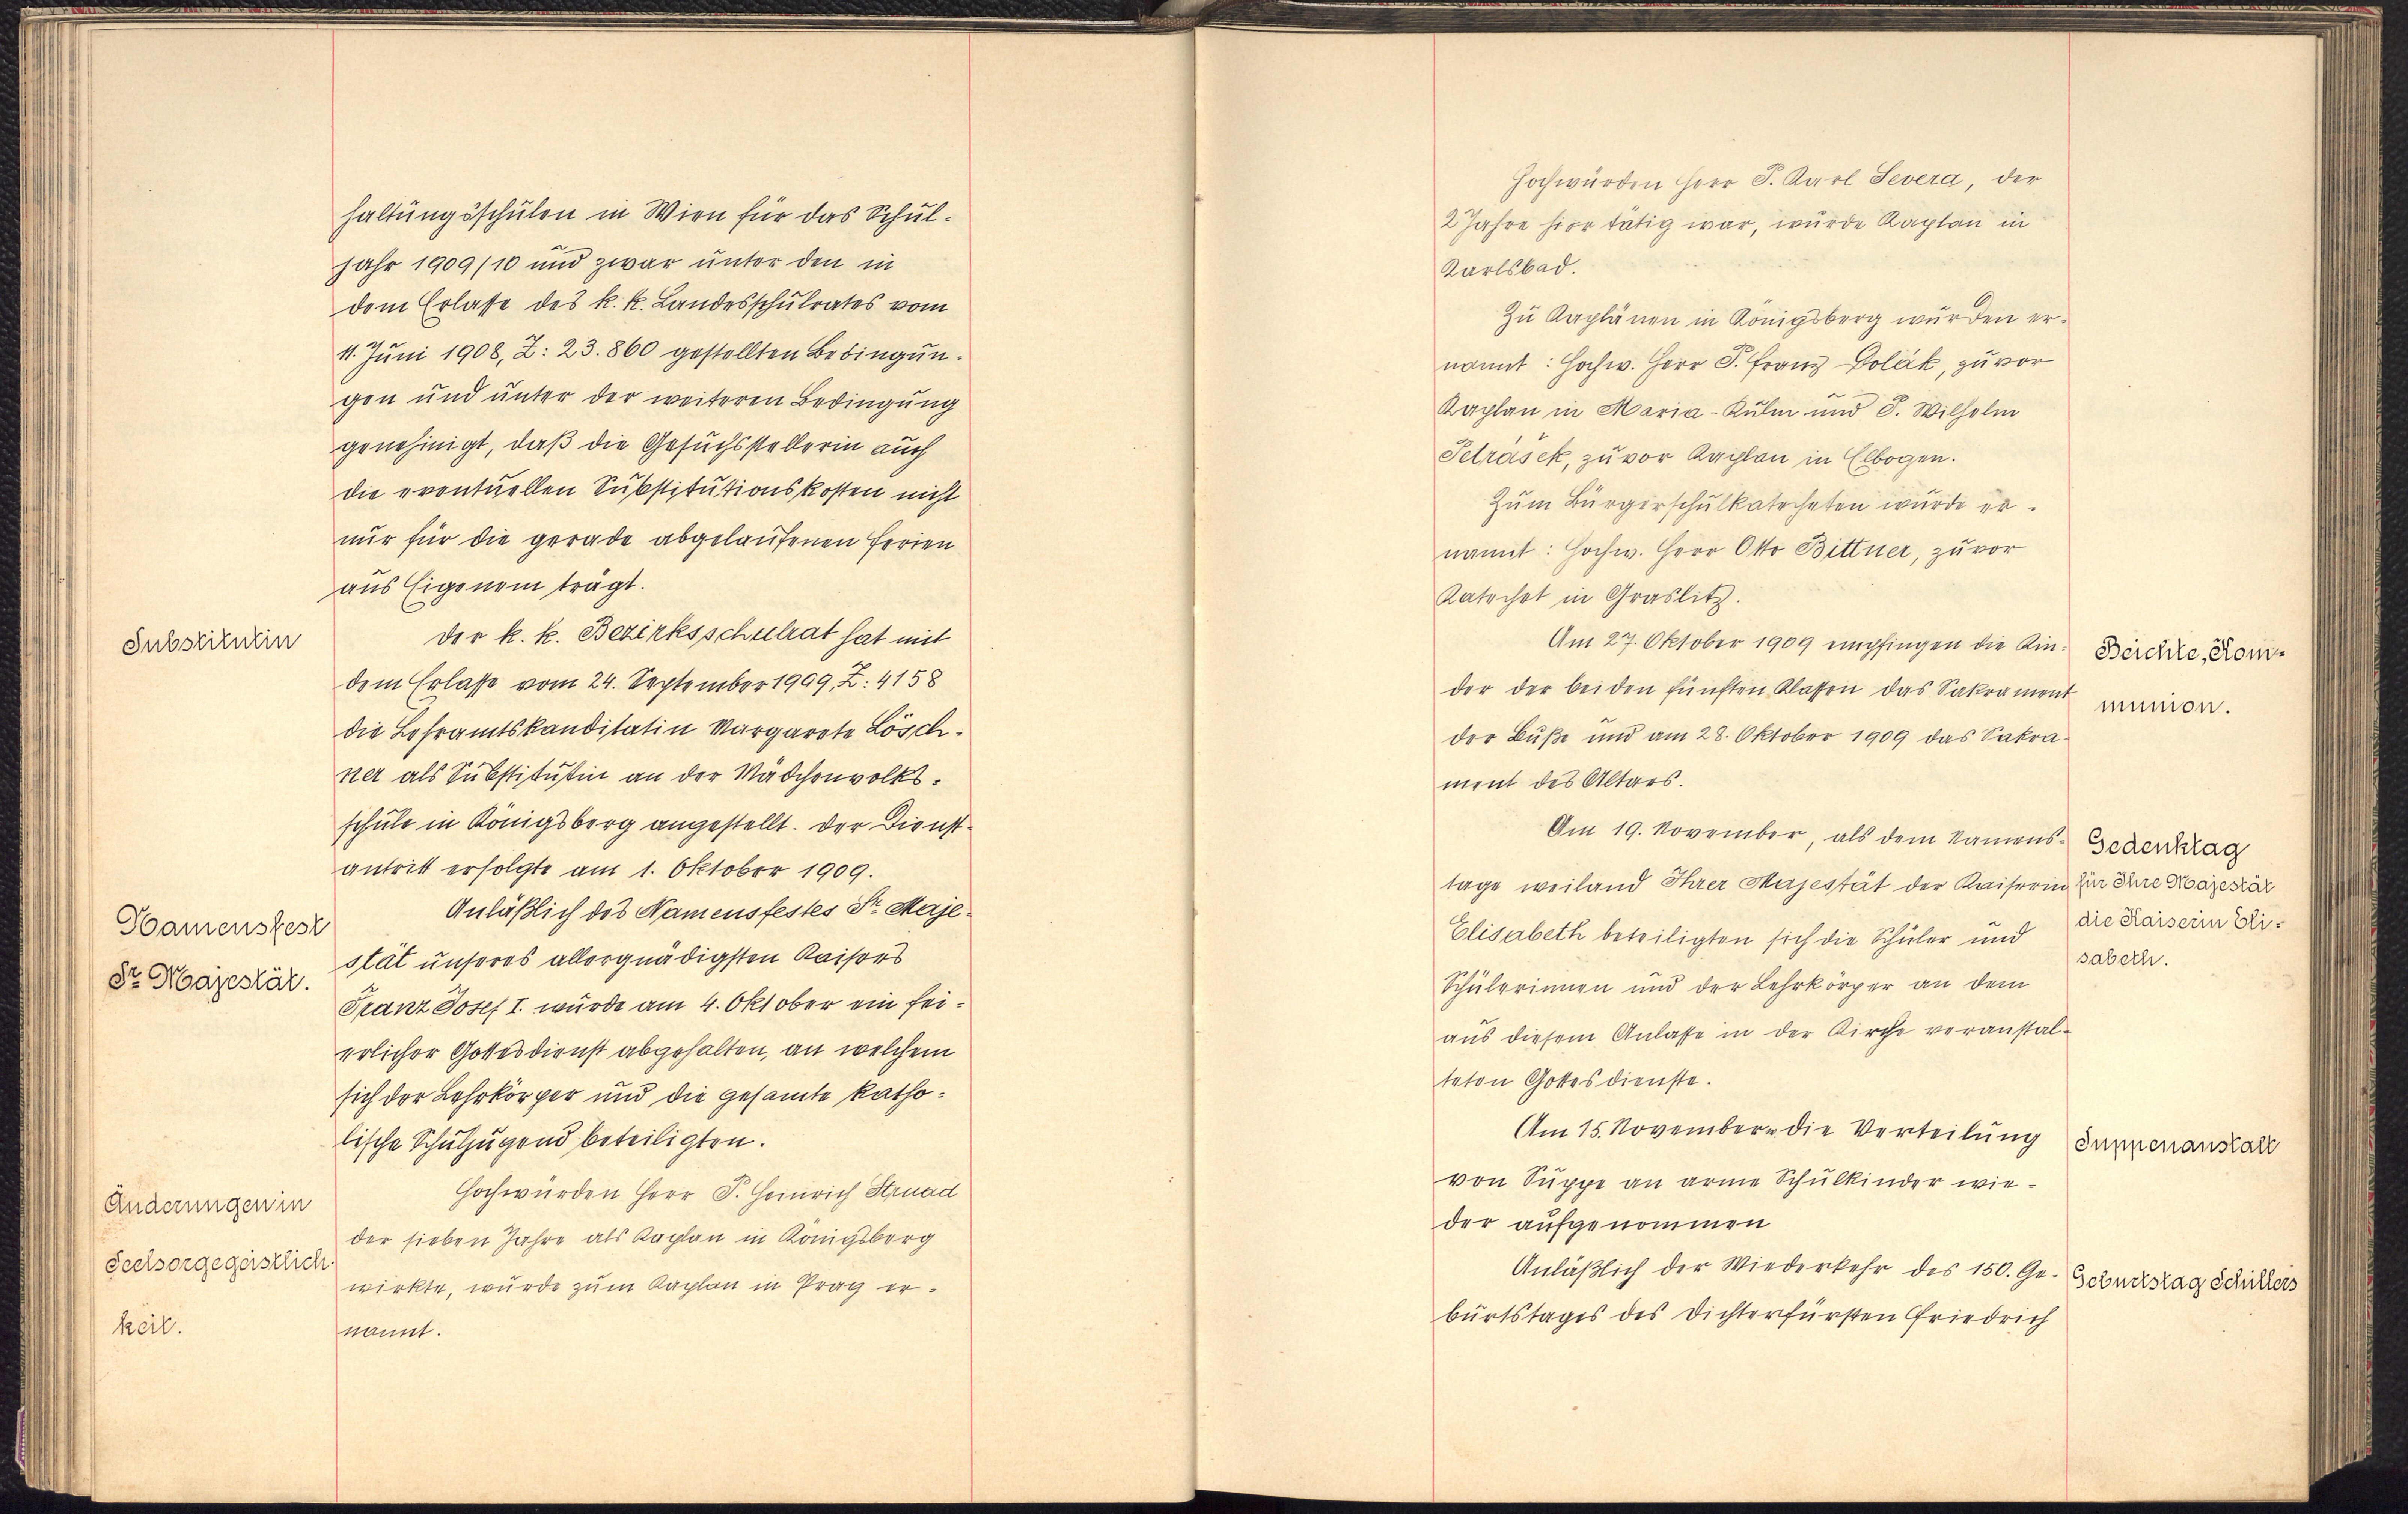 haltungsschulen in Wien für das Schul-
jahr 1909/10 und zwar unter den in
dem Erlasse des k. k. Landesschulrates vom
11. Juni 1908, Z: 23.860 gestellten Bedingun-
gen und unter der weiteren Bedingung
genehmigt, daß die Gesuchstellerin auch
die eventuellen Substitutionskosten nicht
nur für die gerade abgelaufenen Ferien
aus Eigenem trägt.
Substitutin
Der k. k. Bezirksschulrat hat mit
dem Erlasse vom 24. September 1909, Z: 4158
die Lehramtskanditatin Margarete Lösch-
ner als Substitutin an der Mädchenvolks-
schule in Königsberg angestellt. Der Dienst-
antritt erfolgte am 1. Oktober 1909.
Namensfest
Sr. Majestät.
Anläßlich des Namensfestes Sr. Maje-
stät unseres allergnädigsten Kaisers
Franz Josef I. wurde am 4. Oktober ein fei-
erlicher Gottesdienst abgehalten, an welchem
sich der Lehrkörper und die gesamte katho-
lische Schuljugend beteiligten.
Änderungen in
Seelsorgegeistlich-
keit.
Hochwürden Herr P. Heinrich Strnad
der sieben Jahre als Kaplan in Königsberg
wirkte, wurde zum Kaplan in Prag er-
nannt.
Hochwürden Herr P. Karl Severa, der
2 Jahre hier tätig war, wurde Kaplan in
Karlsbad.
Zu Kaplänen in Königsberg wurden er-
nannt: Hochw. Herr P. Franz Polák, zuvor
Kaplan in Maria-Kulm und P. Wilhelm
Petrásek, zuvor Kaplan in Elbogen.
Zum Bürgerschulkatecheten wurde er-
nannt: Hochw. Herr Otto Bittner, zuvor
Katechet in Graslitz.
Am 27. Oktober 1909 empfingen die Kin-
der der beiden fünften Klassen das Sakrament
der Buße und am 28. Oktober 1909 das Sakra-
ment des Altars.
Beichte, Kom-
munion.
Am 19. November, als dem Namens-
tage weiland Ihrer Majestät der Kaiserin
Elisabeth beteiligten sich die Schüler und
Schülerinnen und der Lehrkörper an dem
aus diesem Anlasse in der Kirche veranstal-
teten Gottesdienste.
Gedenktag
für Ihre Majestät
die Kaiserin Eli-
sabeth.
Am 15. November die Verteilung
von Suppe an arme Schulkinder wie-
der aufgenommen
Suppenanstalt
Anläßlich der Wiederkehr des 150. Ge-
burtstages des Dichterfürsten Friedrich
Geburtstag Schillers